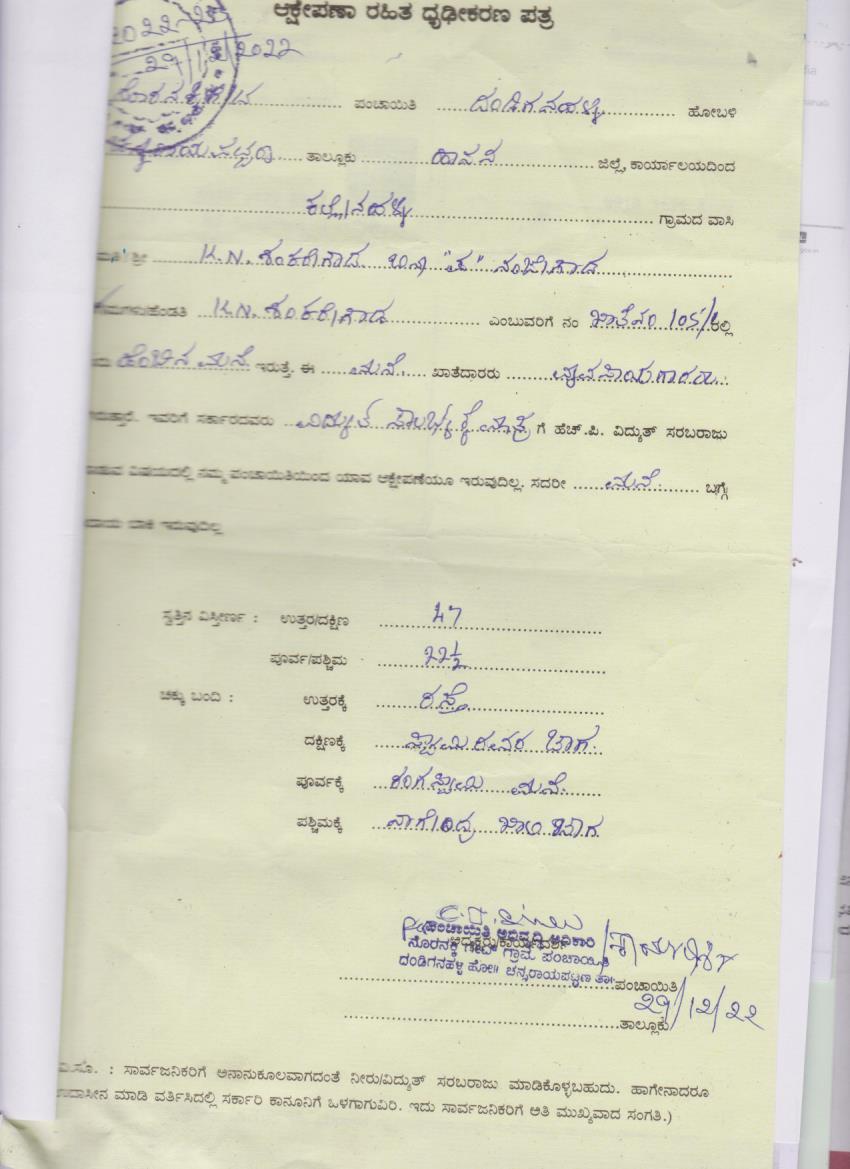 ಆಕ್ಷೇಪಣಾ ರಹಿತ ಧೃಢೀಕರಣ ಪತ್ರ
2022-23
29/12/2022
ಪಂಚಾಯಿತಿ ದಂಡಿಗನಹಳ್ಳಿ ಹೋಬಳಿ
ತಾಲ್ಲೂಕು ಹಾಸನ ಜಿಲ್ಲೆ, ಕಾರ್ಯಾಲಯದಿಂದ
ಗ್ರಾಮದ ವಾಸಿ
ಶ್ರೀ K.N. ಶಂಕರೇಗೌಡ ಬಿನ್ ನಂಜೇಗೌಡ
ಮಗಳು/ಹೆಂಡತಿ K.N. ಶಂಕರೇಗೌಡ ಎಂಬುವರಿಗೆ ನಂ ಖಾತೆನಂ ರಲ್ಲಿ
ಹೆಂಚಿನ ಮನೆ ಇರುತ್ತೆ. ಈ ಮನೆ ಖಾತೆದಾರರು ವ್ಯವಸಾಯಗಾರರು
ಇರುತ್ತಾರೆ. ಇವರಿಗೆ ಸರ್ಕಾರದವರು ವಿದ್ಯುತ್ ಸೌಲಭ್ಯಕ್ಕೆ ಗೆ ಹೆಚ್.ಪಿ. ವಿದ್ಯುತ್ ಸರಬರಾಜು
ವಿಷಯದಲ್ಲಿ ನಮ್ಮ ಪಂಚಾಯಿತಿಯಿಂದ ಯಾವ ಆಕ್ಷೇಪಣೆಯೂ ಇರುವುದಿಲ್ಲ. ಸದರೀ ಮನೆ ಬಗ್ಗೆ
ಬಾಕಿ ಇರುವುದಿಲ್ಲ
ಸ್ವತ್ತಿನ ವಿಸ್ತೀರ್ಣ : ಉತ್ತರ/ದಕ್ಷಿಣ 47
ಪೂರ್ವ/ಪಶ್ಚಿಮ 22½
ಚಕ್ಕು ಬಂದಿ : ಉತ್ತರಕ್ಕೆ ರಸ್ತೆ
ದಕ್ಷಿಣಕ್ಕೆ ಜಾಗ
ಪೂರ್ವಕ್ಕೆ ರಂಗಸ್ವಾಮಿ ಮನೆ
ಪಶ್ಚಿಮಕ್ಕೆ ನಾಗೇಂದ್ರ ಖಾಲಿ ಜಾಗ
ಪಂಚಾಯಿತಿ ಅಭಿವೃದ್ಧಿ ಅಧಿಕಾರಿ
ಅಧ್ಯಕ್ಷರು/ಕಾರ್ಯದರ್ಶಿ
ನೊರನಕ್ಕಿ ಗೇಟ್ ಗ್ರಾಮ ಪಂಚಾಯಿತಿ
ದಂಡಿಗನಹಳ್ಳಿ ಹೋ|| ಚನ್ನರಾಯಪಟ್ಟಣ ತಾ||
ಪಂಚಾಯಿತಿ
29/12/22
ತಾಲ್ಲೂಕು
ವಿ.ಸೂ. : ಸಾರ್ವಜನಿಕರಿಗೆ ಅನಾನುಕೂಲವಾಗದಂತೆ ನೀರು/ವಿದ್ಯುತ್ ಸರಬರಾಜು ಮಾಡಿಕೊಳ್ಳಬಹುದು. ಹಾಗೇನಾದರೂ
ಉದಾಸೀನ ಮಾಡಿ ವರ್ತಿಸಿದಲ್ಲಿ ಸರ್ಕಾರಿ ಕಾನೂನಿಗೆ ಒಳಗಾಗುವಿರಿ. ಇದು ಸಾರ್ವಜನಿಕರಿಗೆ ಅತಿ ಮುಖ್ಯವಾದ ಸಂಗತಿ.)